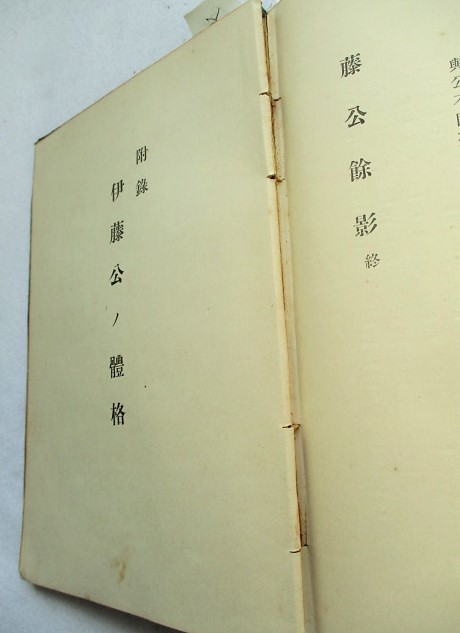 藤公餘影 終
附錄
伊藤公ノ體格